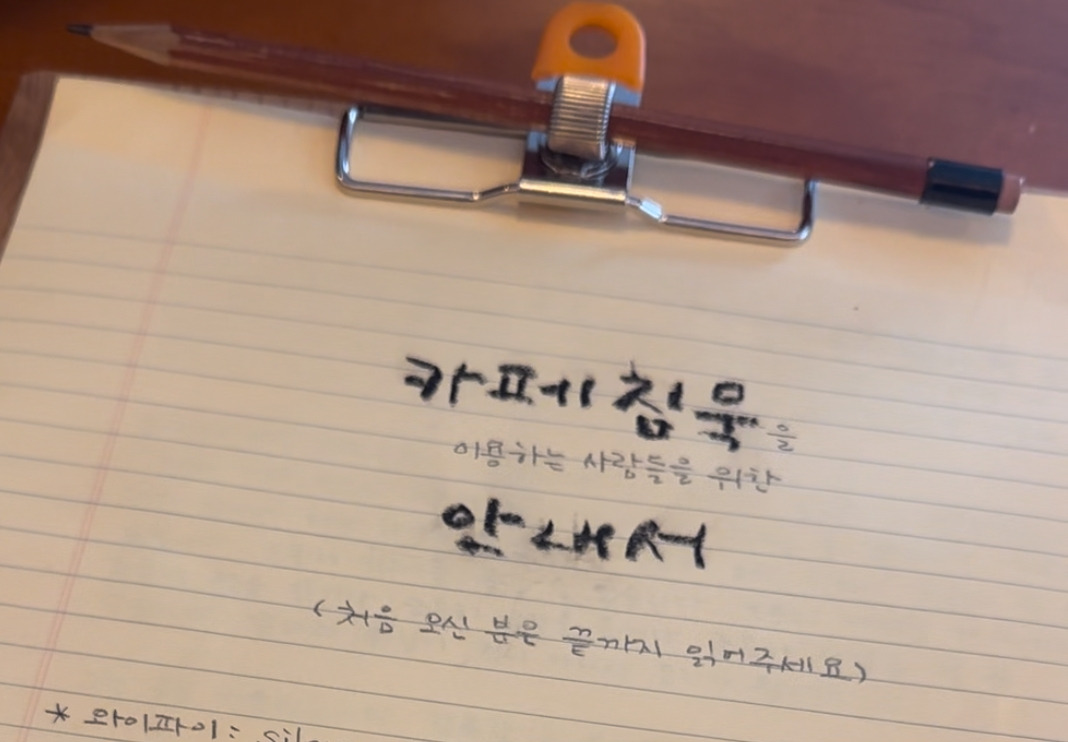 카페 침묵을
이용하는 사람들을 위한
안내서
(처음 오신 분은 끝까지 읽어주세요)
* 와이파이 :